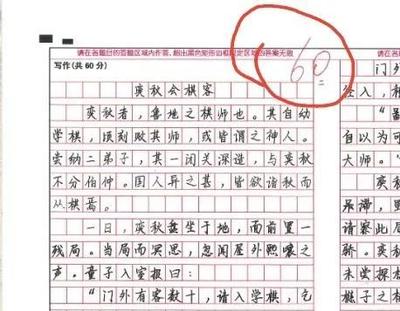 请在各题目的答题区域内作答,超出黑色矩形边框限定区域的答案无效
60
写作(共60分)
弈秋会棋客
弈秋者,鲁地之棋师也。其自幼
学棋,顷刻败其师,或皆谓之神人。
尝纳二弟子,其一闭关深造,与弈秋
不分伯仲。国人异之甚,皆欲诣秋而
从棋焉。
一日,弈秋盘坐于地,面前置一
残局。当局而冥思,忽闻屋外熙嚷之
声。童子入室报曰:
“门外有客数十,请入学棋,乞
请在各题目
门外
登入,相
自以为可
大师。”
弈秋
呆滞,
请察此局
骄。弈秋
未尝探